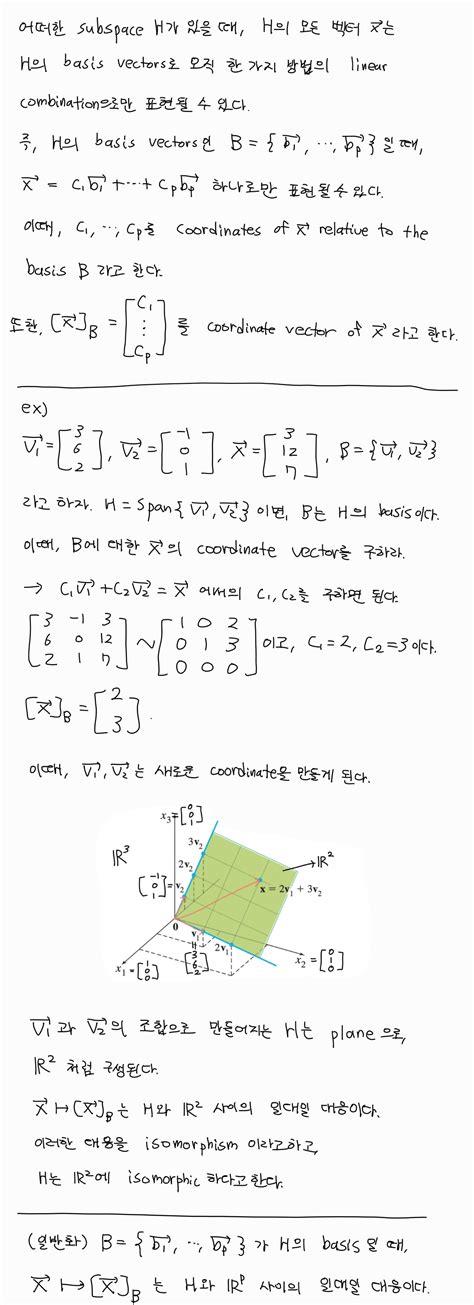 어떠한 subspace H가 있을 때, H의 모든 벡터 x⃗는
H의 basis vectors로 오직 한 가지 방법의 linear
combination으로만 표현될 수 있다.
즉, H의 basis vectors인 B = { b₁⃗, ⋯, bₚ⃗ } 일 때,
x⃗ = c₁b₁⃗ + ⋯ + cₚbₚ⃗ 하나로만 표현될 수 있다.
이때, c₁, ⋯, cₚ를 coordinates of x⃗ relative to the
basis B 라고 한다.
또한, [x⃗]_B = [c₁ ⋮ cₚ] 를 coordinate vector of x⃗ 라고 한다.
ex)
v₁⃗ = [3 6 2], v₂⃗ = [-1 0 1], x⃗ = [3 12 7], B = {v₁⃗, v₂⃗}
라고 하자. H = Span{ v₁⃗, v₂⃗ } 이면, B는 H의 basis이다.
이때, B에 대한 x⃗의 coordinate vector를 구하라.
→ c₁v₁⃗ + c₂v₂⃗ = x⃗ 에서의 c₁, c₂를 구하면 된다.
[3 -1 3 / 6 0 12 / 2 1 7] ~ [1 0 2 / 0 1 3 / 0 0 0] 이고, c₁ = 2, c₂ = 3 이다.
[x⃗]_B = [2 3].
이때, v₁⃗, v₂⃗는 새로운 coordinate을 만들게 된다.
x₃ = [0 0 1]
3v₂
ℝ³
2v₂
→ℝ²
[-1 0 1] = v₂
x = 2v₁ + 3v₂
0
v₁
2v₁
[3 6 2]
x₂ = [0 1 0]
x₁ = [1 0 0]
v₁⃗과 v₂⃗의 조합으로 만들어지는 H는 plane으로,
ℝ² 처럼 구성된다.
x⃗ ↦ [x⃗]_B 는 H와 ℝ² 사이의 일대일 대응이다.
이러한 대응을 isomorphism 이라고하고,
H는 ℝ²에 isomorphic 하다고한다.
(일반화) B = { b₁⃗, ⋯, bₚ⃗ } 가 H의 basis 일 때,
x⃗ ↦ [x⃗]_B 는 H와 ℝᵖ 사이의 일대일 대응이다.